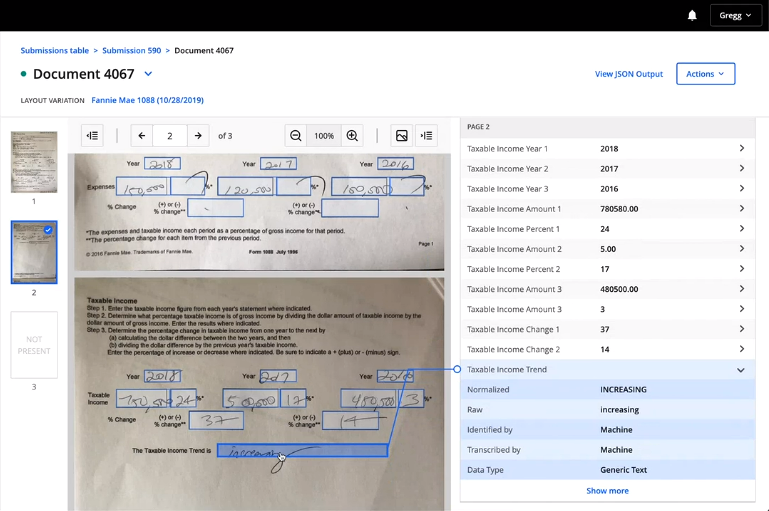 Gregg
Submissions table > Submission 590 > Document 4067
Document 4067
View JSON Output
Actions
LAYOUT VARIATION Fannie Mae 1088 (10/28/2019)
1
2
NOT PRESENT
3
2 of 3
100%
Year 2018 Year 2017 Year 2016
Expenses 150,500 %* 120,500 %* 150,500 %*
% Change (+) or (-) % change** (+) or (-) % change**
*The expenses and taxable income each period as a percentage of gross income for that period.
**The percentage change for each item from the previous period.
Page 1
© 2016 Fannie Mae. Trademarks of Fannie Mae. Form 1088 July 1996
Taxable Income
Step 1. Enter the taxable income figure from each year's statement where indicated.
Step 2. Determine what percentage taxable income is of gross income by dividing the dollar amount of taxable income by the
dollar amount of gross income. Enter the results where indicated.
Step 3. Determine the percentage change in taxable income from one year to the next by
(a) calculating the dollar difference between the two years, and then
(b) dividing the dollar difference by the previous year's taxable income.
Enter the percentage of increase or decrease where indicated. Be sure to indicate a + (plus) or - (minus) sign.
Year 2018 Year 2017 Year 2016
Taxable Income 24 %* 17 %* 3 %*
% Change (+) or (-) % change** 37 (+) or (-) % change** 14
The Taxable Income Trend is increasing
PAGE 2
Taxable Income Year 1 2018
Taxable Income Year 2 2017
Taxable Income Year 3 2016
Taxable Income Amount 1 780580.00
Taxable Income Percent 1 24
Taxable Income Amount 2 5.00
Taxable Income Percent 2 17
Taxable Income Amount 3 480500.00
Taxable Income Amount 3 3
Taxable Income Change 1 37
Taxable Income Change 2 14
Taxable Income Trend
Normalized INCREASING
Raw increasing
Identified by Machine
Transcribed by Machine
Data Type Generic Text
Show more